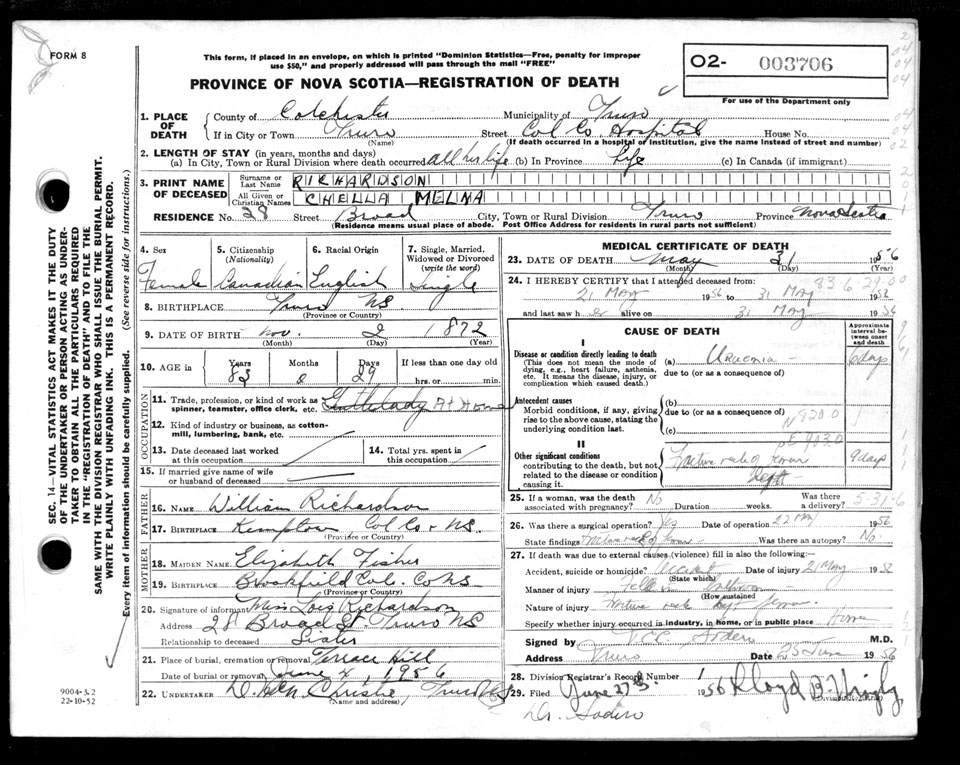 FORM 8
This form, if placed in an envelope, on which is printed "Dominion Statistics—Free, penalty for improper
use $50," and properly addressed will pass through the mail "FREE"
O2- 003706
PROVINCE OF NOVA SCOTIA—REGISTRATION OF DEATH
For use of the Department only
1. PLACE OF DEATH
County of Colchester Municipality of Truro
If in City or Town Truro Street Col Co Hospital House No.
(Name) (If death occurred in a hospital or institution, give the name instead of street and number)
2. LENGTH OF STAY (in years, months and days)
(a) In City, Town or Rural Division where death occurred all her life (b) In Province Life (c) In Canada (if immigrant)
3. PRINT NAME OF DECEASED
Surname or Last Name RICHARDSON
All Given or Christian Names CHELLA MELNA
RESIDENCE No. 28 Street Broad City, Town or Rural Division Truro Province Nova Scotia
(Residence means usual place of abode. Post Office Address for residents in rural parts not sufficient)
SEC. 14—VITAL STATISTICS ACT MAKES IT THE DUTY
OF THE UNDERTAKER OR PERSON ACTING AS UNDER-
TAKER TO OBTAIN ALL THE PARTICULARS REQUIRED
IN THE "REGISTRATION OF DEATH" AND TO FILE THE
SAME WITH THE DIVISION REGISTRAR WHO SHALL ISSUE THE BURIAL PERMIT.
WRITE PLAINLY WITH UNFADING INK. THIS IS A PERMANENT RECORD.
Every item of information should be carefully supplied. (See reverse side for instructions.)
4. Sex
Female
5. Citizenship
(Nationality)
Canadian
6. Racial Origin
English
7. Single, Married,
Widowed or Divorced
(write the word)
Single
8. BIRTHPLACE Truro NS.
(Province or Country)
9. DATE OF BIRTH Nov. 2 1872
(Month) (Day) (Year)
10. AGE in
Years 83
Months
Days 29
If less than one day old
hrs. or min.
OCCUPATION
11. Trade, profession, or kind of work as
spinner, teamster, office clerk, etc. At Home
12. Kind of industry or business, as cotton-
mill, lumbering, bank, etc.
13. Date deceased last worked
at this occupation
14. Total yrs. spent in
this occupation
15. If married give name of wife
or husband of deceased
FATHER
16. NAME William Richardson
17. BIRTHPLACE Kemptown Col Co. NS.
(Province or Country)
MOTHER
18. MAIDEN NAME Elizabeth Fisher
19. BIRTHPLACE Brookfield Col. Co NS
(Province or Country)
20. Signature of informant Miss Lois Richardson
Address 28 Broad St. Truro NS
Relationship to deceased Sister
21. Place of burial, cremation or removal Terrace Hill
Date of burial or removal June 1956
22. UNDERTAKER Christie, Truro NS
(Name and address)
9004-3.2
22-10-52
MEDICAL CERTIFICATE OF DEATH
23. DATE OF DEATH May 31 1956
(Month) (Day) (Year)
24. I HEREBY CERTIFY that I attended deceased from 83-6-29-00
21 May 1956 to 31 May 1956
and last saw her alive on 31 May 1956
CAUSE OF DEATH
Approximate
interval be-
tween onset
and death
I
Disease or condition directly leading to death
(This does not mean the mode of
dying, e.g., heart failure, asthenia,
etc. It means the disease, injury, or
complication which caused death.)
(a) Uraemia 6 days
due to (or as a consequence of)
Antecedent causes
Morbid conditions, if any, giving
rise to the above cause, stating the
underlying condition last.
(b)
due to (or as a consequence of)
(c)
N820.0
E903.0
II
Other significant conditions
contributing to the death, but not
related to the disease or condition
causing it.
Fracture neck of femur 9 days
Left
25. If a woman, was the death
associated with pregnancy? No Duration weeks. Was there
a delivery?
5-31-6
26. Was there a surgical operation? Yes Date of operation 22 May 1956
State findings Fracture neck of femur Was there an autopsy? No
27. If death was due to external causes (violence) fill in also the following:—
Accident, suicide or homicide? Accident Date of injury 21 May 1956
(State which)
Manner of injury Fell in bathroom
(How sustained)
Nature of injury Fracture neck left femur
Specify whether injury occurred in industry, in home, or in public place Home
Signed by M.D.
Address Truro Date 25 June 1956
28. Division Registrar's Record Number
29. Filed June 27th. 1956 Lloyd B.
(Division Registrar)
Dr.